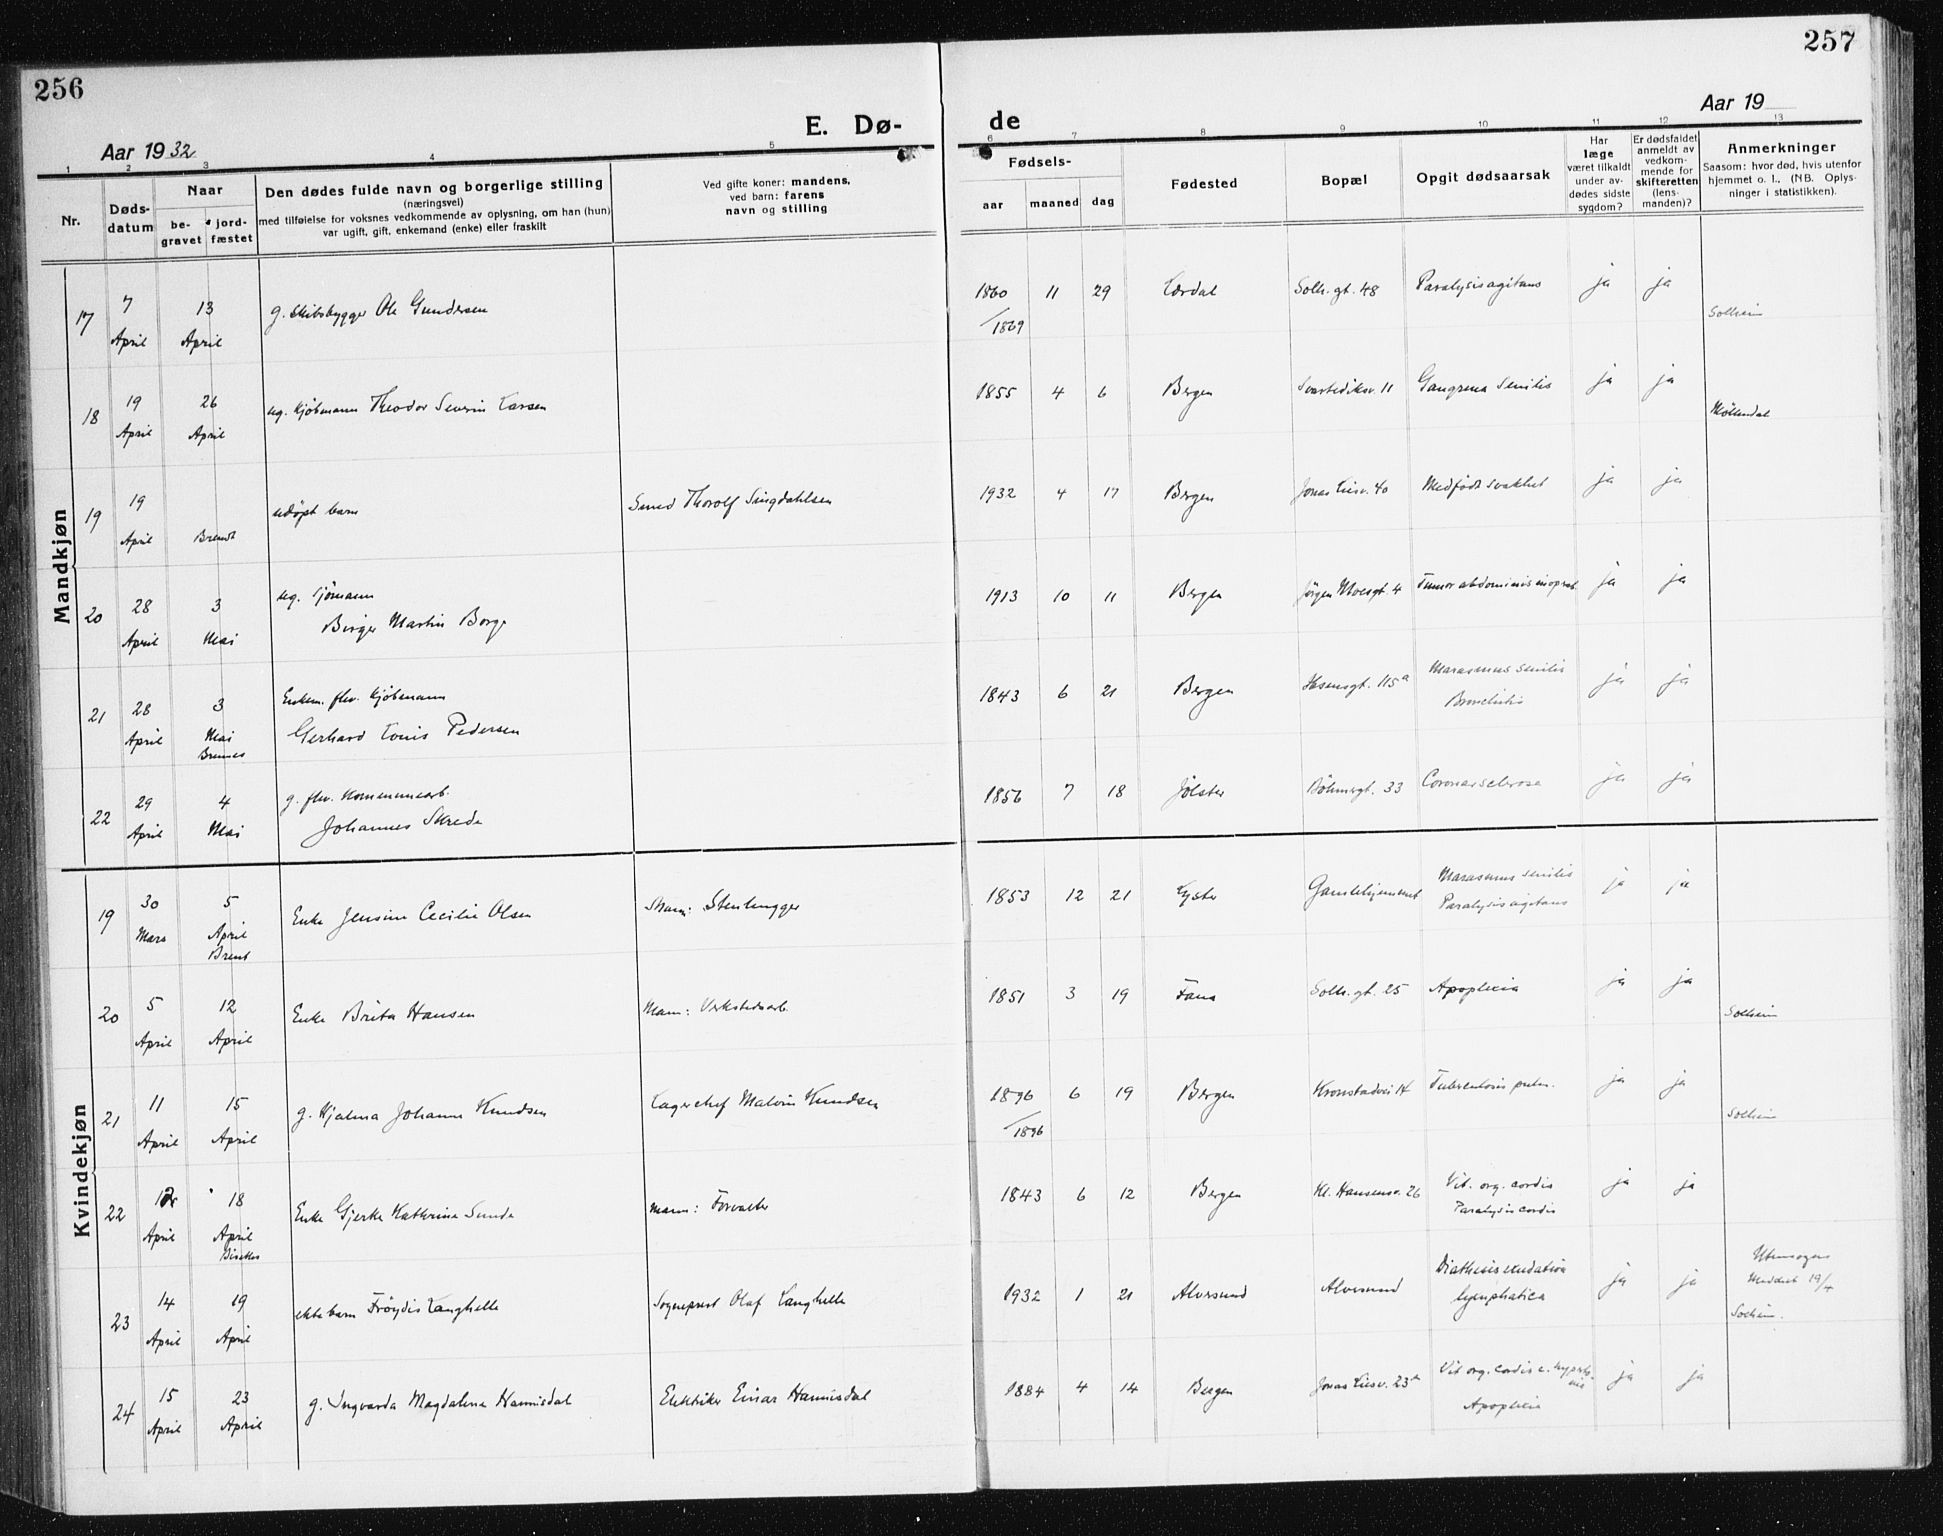 256
257
E. Dø-
de
Aar 1932
Aar 19
1 2 3 4 5 6 7 8 9 10 11 12 13
Nr.
Døds-
datum
Naar
be-
gravet
jord-
fæstet
Den dødes fulde navn og borgerlige stilling
(næringsvei)
med tilføielse for voksnes vedkommende av oplysning, om han (hun)
var ugift, gift, enkemand (enke) eller fraskilt
Ved gifte koner: mandens,
ved barn: farens
navn og stilling
Fødsels-
aar maaned dag
Fødested
Bopæl
Opgit dødsaarsak
Har
læge
været tilkaldt
under av-
dødes sidste
sygdom?
Er dødsfaldet
anmeldt av
vedkom-
mende for
skifteretten
(lens-
manden)?
Anmerkninger
Saasom: hvor død, hvis utenfor
hjemmet o. l., (NB. Oplys-
ninger i statistikken).
Mandkjøn
17 7 April 13 April g. skibsbygger Ole Gundersen 1860 11 29 Lærdal Solh. gt. 48 Paralysis agitans ja ja
/1869 Solheim
18 19 April 26 April ug. kjøbmann Theodor Severin Larsen 1855 4 6 Bergen Svartediksv. 11 Gangrena Senilis ja ja
Møllendal
19 19 April Brendt udøpt barn Smed Thorolf Singdahlsen 1932 4 17 Bergen Jonas Liesv. 40 Medfødt svakhet ja ja
20 28 April 3 Mai ug. sjømann 1913 10 11 Bergen Jørgen Moesgt. 4 Tumor abdominis inoprab. ja ja
Birger Martin Borge
21 28 April 3 Mai Enkem. fhv. kjøbmann 1843 6 21 Bergen Ibsensgt. 115a Marasmus senilis ja ja
Gerhard Louis Pedersen Bronchitis
22 29 April 4 Mai g. fhv. kommunearb. 1856 7 18 Jølster Bøhmergt. 33 Coronarsclerose ja ja
Johannes Skrede
Kvindekjøn
19 30 Mars 5 April Brent Enke Jensine Cecilie Olsen Mann: Stenhugger 1853 12 21 Lyster Gamlehjemmet Marasmus senilis ja ja
Paralysis agitans
20 5 April 12 April Enke Brita Hansen Mann: Verkstedsarb. 1851 3 19 Fana Solh. gt. 25 Apoplexia ja ja
Solheim
21 11 April 15 April g. Hjalma Johanne Knudsen Lagerchef Malvin Knudsen 1896 6 19 Bergen Kronstadvei 14 Tuberculosis pulm. ja ja
/1896 Solheim
22 12 April 18 April Enke Gjerke Kathrine Sunde Mann: Forvalter 1843 6 12 Bergen Kl. Hansensv. 26 Vit. org. cordis ja ja
Paralysis cordis
23 14 April 19 April ekte barn Frøydis Langhelle Sogneprest Olaf Langhelle 1932 1 21 Alversund Alversund Diathesis exudativa ja ja Utensogns
lymphatica Meddelt 19/4
Solheim.
24 15 April 23 April g. Ingvarda Magdalena Hannisdal Elektriker Einar Hannisdal 1884 4 14 Bergen Jonas Liesv. 23a Vit org. cordis c. hypertonia ja ja
Apoplexia